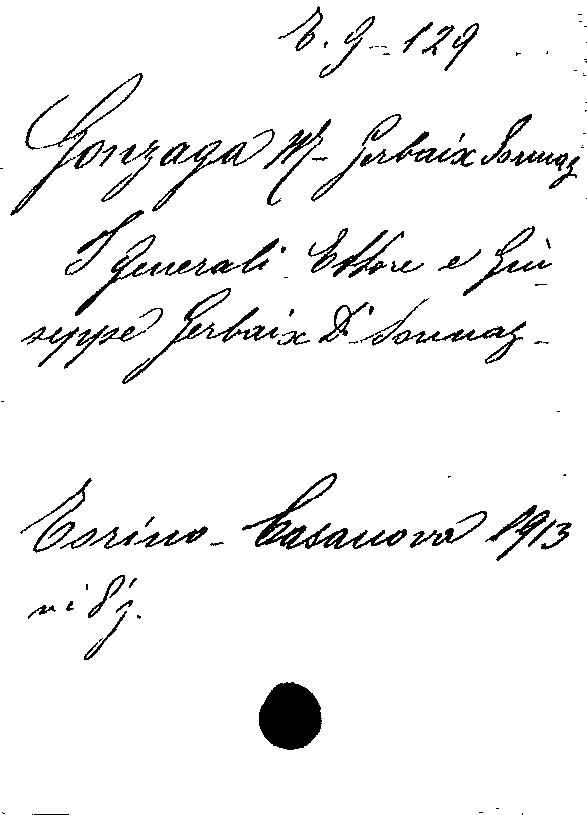 E. G - 129
Gonzaga M - Gerbaix Sonnaz
I generali Ettore e Giu-
seppe Gerbaix Di Sonnaz -
Torino - Casanova 1913